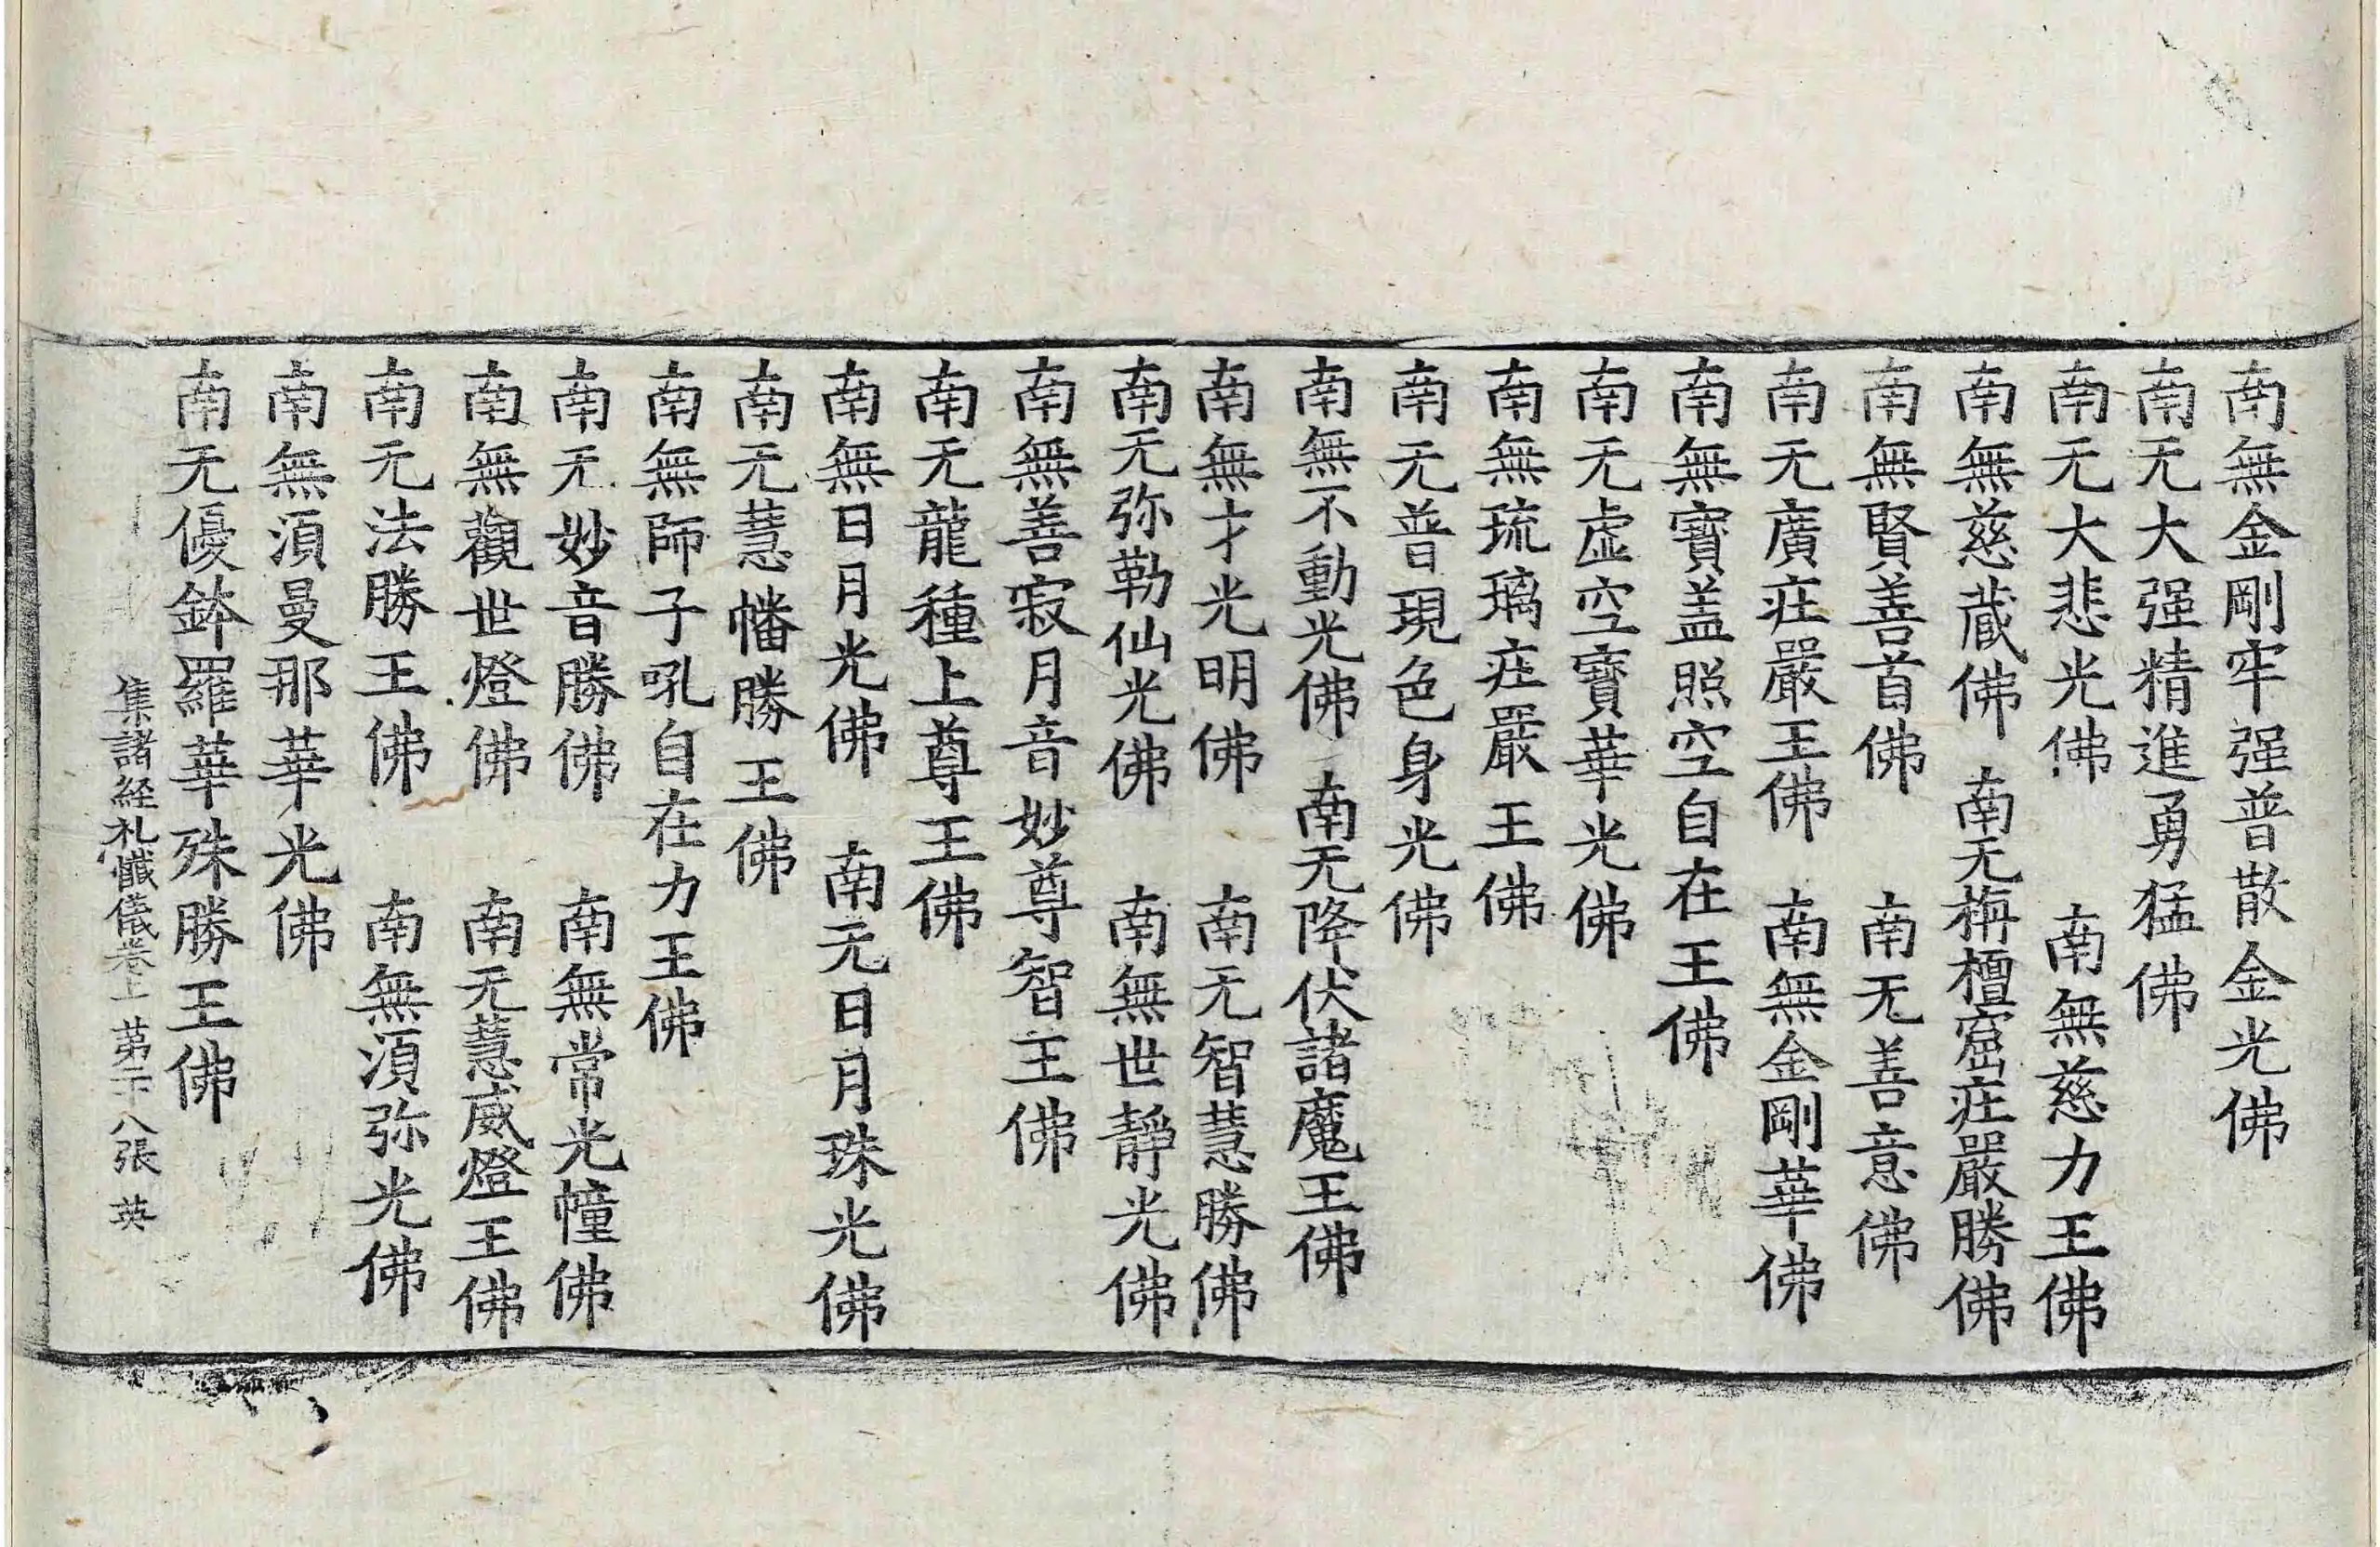 南無金剛牢强普散金光佛
南无大强精進勇猛佛
南无大悲光佛　南無慈力王佛
南無慈蔵佛　南无栴檀窟庄嚴勝佛
南無賢善首佛　南无善意佛
南无廣庄嚴王佛　南無金剛華佛
南無寶盖照空自在王佛
南无虚空寶華光佛
南無琉璃庄嚴王佛
南无普現色身光佛
南無不動光佛　南无降伏諸魔王佛
南無才光明佛　南无智慧勝佛
南无弥勒仙光佛　南無世靜光佛
南無善寂月音妙尊智王佛
南无龍種上尊王佛
南無日月光佛　南无日月珠光佛
南无慧幡勝王佛
南無師子吼自在力王佛
南无妙音勝佛　南無常光幢佛
南無觀世燈佛　南无慧威燈王佛
南无法勝王佛　南無湏弥光佛
南無湏曼那華光佛
南无優鉢羅華殊勝王佛
集諸経礼懺儀巻上　第二十八張　英